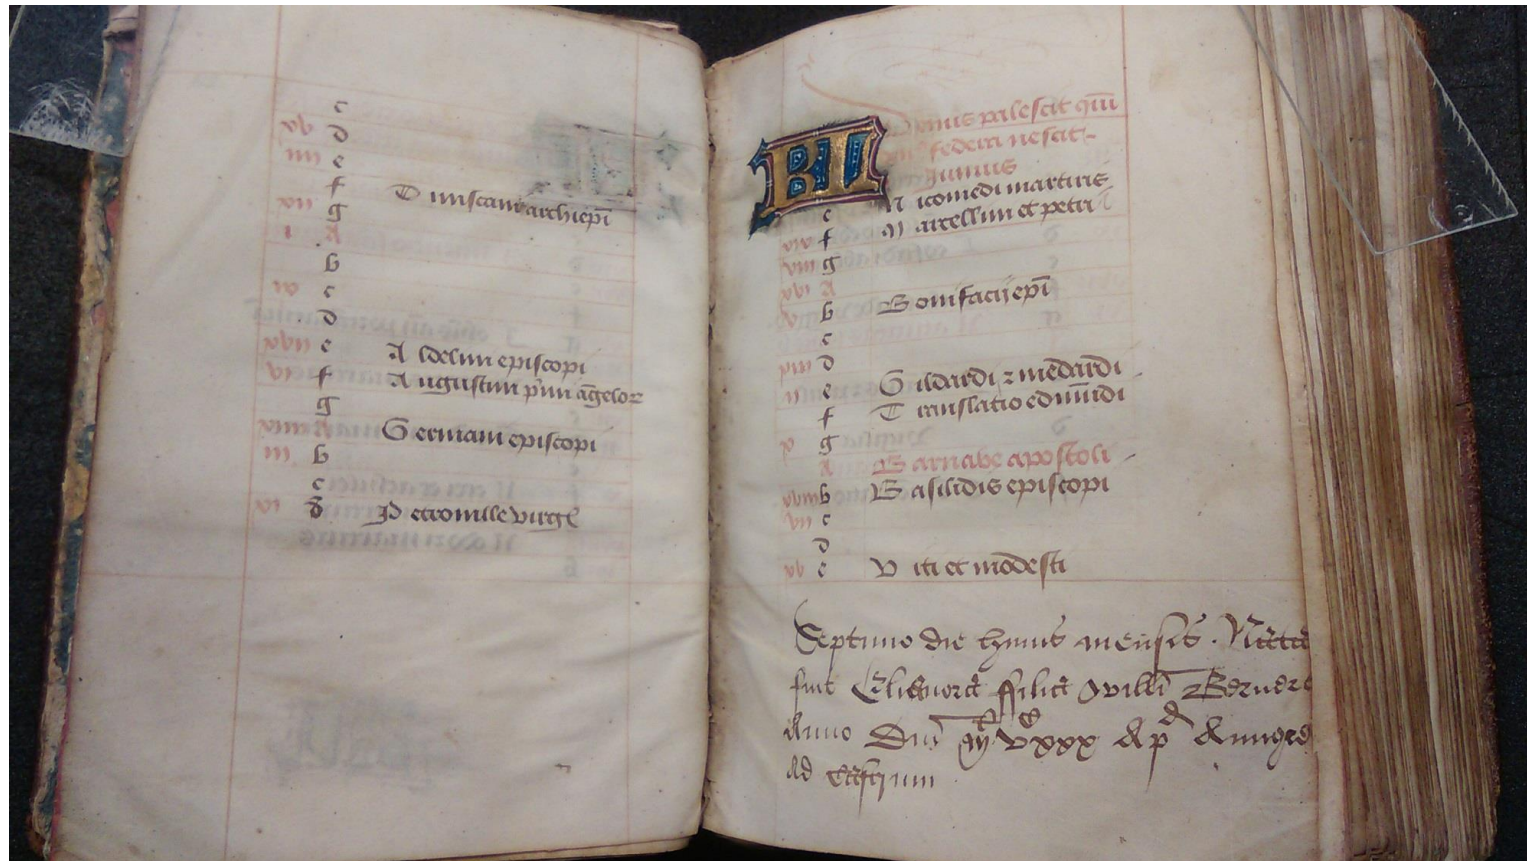 c
xv d
iiii e
f
xii g D unstani archiep̄i
i A
b
ix c
d
xvii e A ldelmi episcopi
vi f A ugustini p'mi āgeloꝝ
g
xiiii A G ermani episcopi
iii b
c
xi d P etronille virgī
KL nis palescit quī
federa nescit
Junius
N icomedi martiris
e
xix f M arcellini et petri
viii g
xvi A
v b B onifacij ep̄i
c
xiii d
ii e G ildardi ⁊ medardi
f T ranslatio edmūdi
x g
A B arnabe apostoli
xviii b B asilidis episcopi
vii c
d
xv e V iti et modesti
Septimo die hujus mensis . Nata
fuit Elisnora ffilia Willī Berners
Anno Dnī Mº vᶜ xxx Apᵈ
Ad